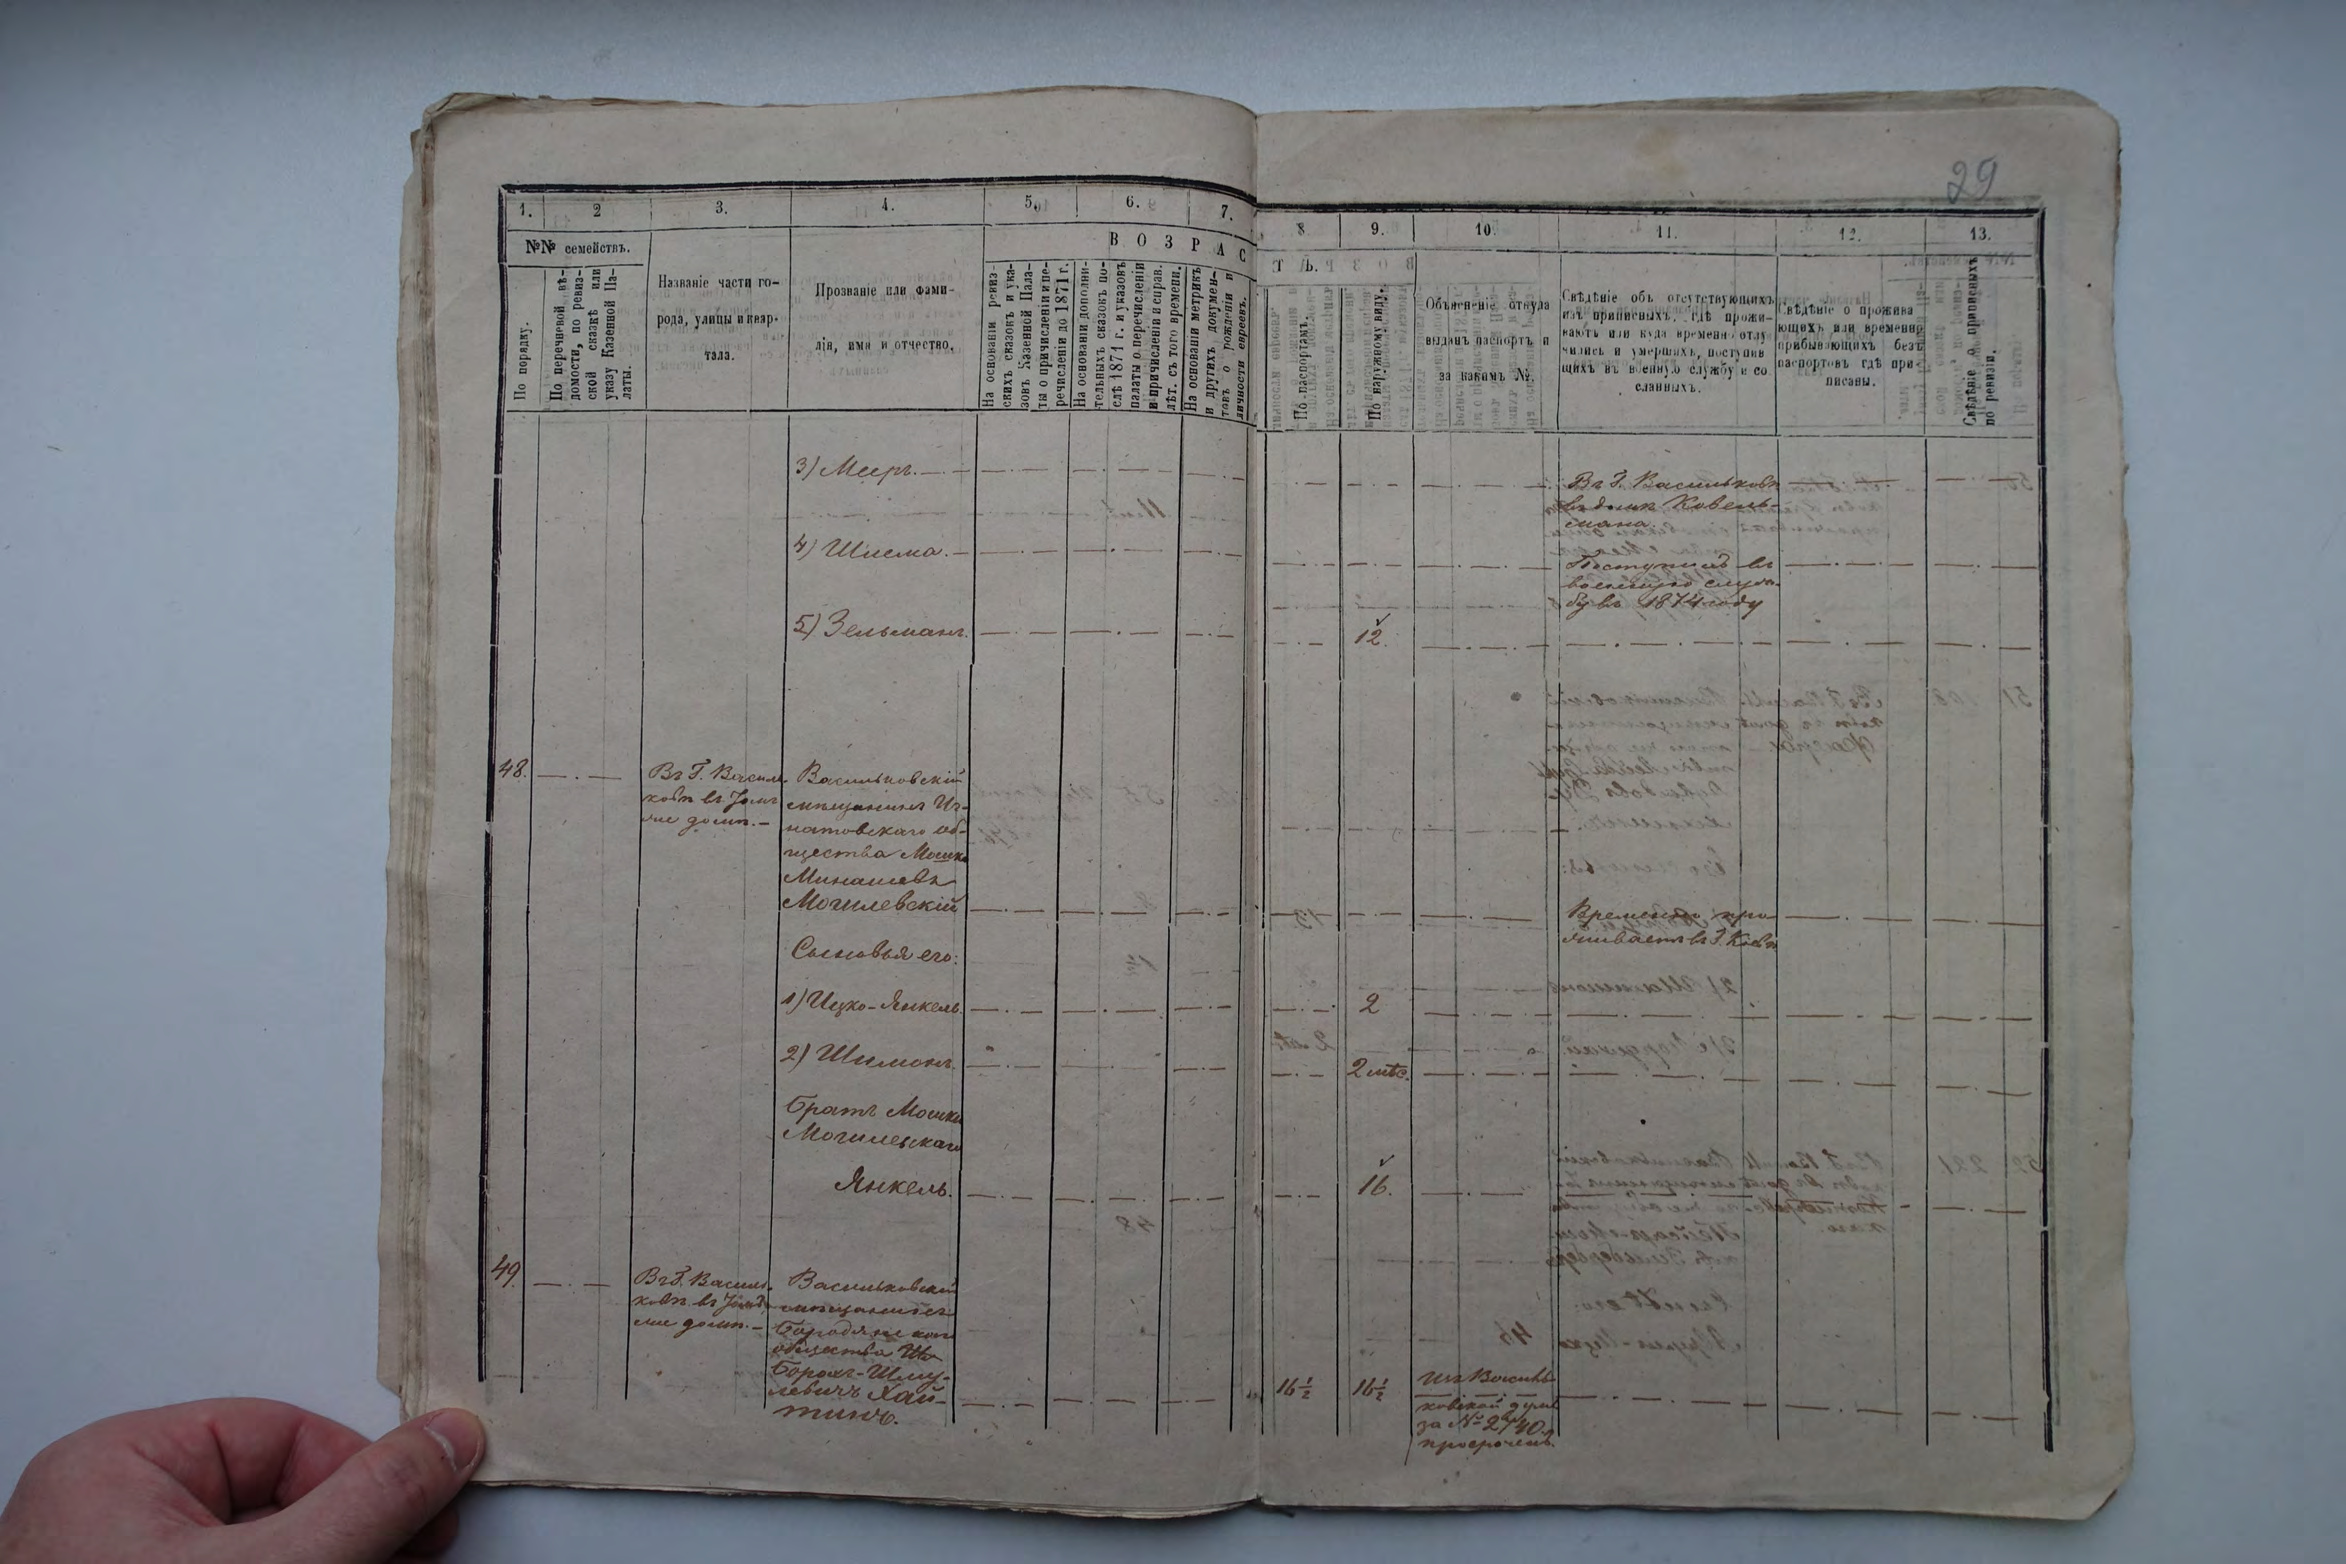 29
1. 2 3. 4. 5. 6. 7.
8 9. 10. 11. 12. 13.
№№ семействъ.
ВОЗРАС
ТЪ.
По порядку.
По перечневой вѣ-
домости, по ревиз-
ской сказкѣ или
указу Казенной Па-
латы.
Названіе части го-
рода, улицы и квар-
тала.
Прозваніе или фами-
лія, имя и отчество.
На основаніи ревиз-
скихъ сказокъ и ука-
зовъ Казенной Пала-
ты о причисленіи и пе-
речисленіи до 1871 г.
На основаніи дополни-
тельныхъ сказокъ по-
слѣ 1871 г. и указовъ
палаты о перечисленіи
и причисленіи и справ.
лѣт. съ того времени.
На основаніи метрикъ
и другихъ докумен-
товъ о рожденіи и
личности евреевъ.
По паспортамъ.
По наружному виду.
Объясненіе откуда
выданъ паспортъ и
за какимъ №.
Свѣдѣніе объ отсутствующихъ
изъ приписныхъ, гдѣ прожи-
ваютъ или куда временно отлу
чились и умершихъ, поступив
щихъ въ военную службу и со
сланныхъ.
Свѣдѣніе о прожива
ющихъ или временнр
прибывающихъ безъ
паспортовъ гдѣ при-
писаны.
Свѣдѣніе о приписныхъ
по ревизіи.
3) Мееръ.
Въ Г. Васильковѣ
въ домѣ Ковель-
мана.
4) Шлема.
Поступилъ въ
военную служ-
бу въ 1874 году
5) Зельманъ.
12.
48.
Въ Г. Василь-
ковѣ въ
домѣ.
Васильковскій
мѣщанинъ Иг-
натовскаго об-
щества Мошко
Минашевъ
Могилевскій
Временно про-
живаетъ въ Г. Кіевѣ
Сыновья его:
1) Ицко-Янкель.
2
2) Шимонъ.
2 мѣс.
Братъ Мошки
Могилевскаго
Янкель.
16.
49.
Въ Г. Василь-
ковѣ въ
домѣ.
Васильковскій
мѣщанинъ
Бородянскаго
общества
Борохъ-Шму-
левичъ Хай-
тинъ.
16 1/2
16 1/2
Изъ Василь-
ковской думы
за № 2740.
просроченъ.